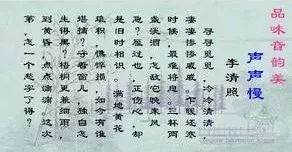 品味音韵美
声声慢
李清照
寻寻觅觅，冷冷清清，
凄凄惨惨戚戚。乍暖还寒
时候，最难将息。三杯两
盏淡酒，怎敌它晚来风
急？雁过也，正伤心，却
是旧时相识。满地黄花
堆积，憔悴损，如今有谁
堪摘？守着窗儿，独自怎
生得黑？梧桐更兼细雨，
到黄昏、点点滴滴。这次
第，怎一个愁字了得？